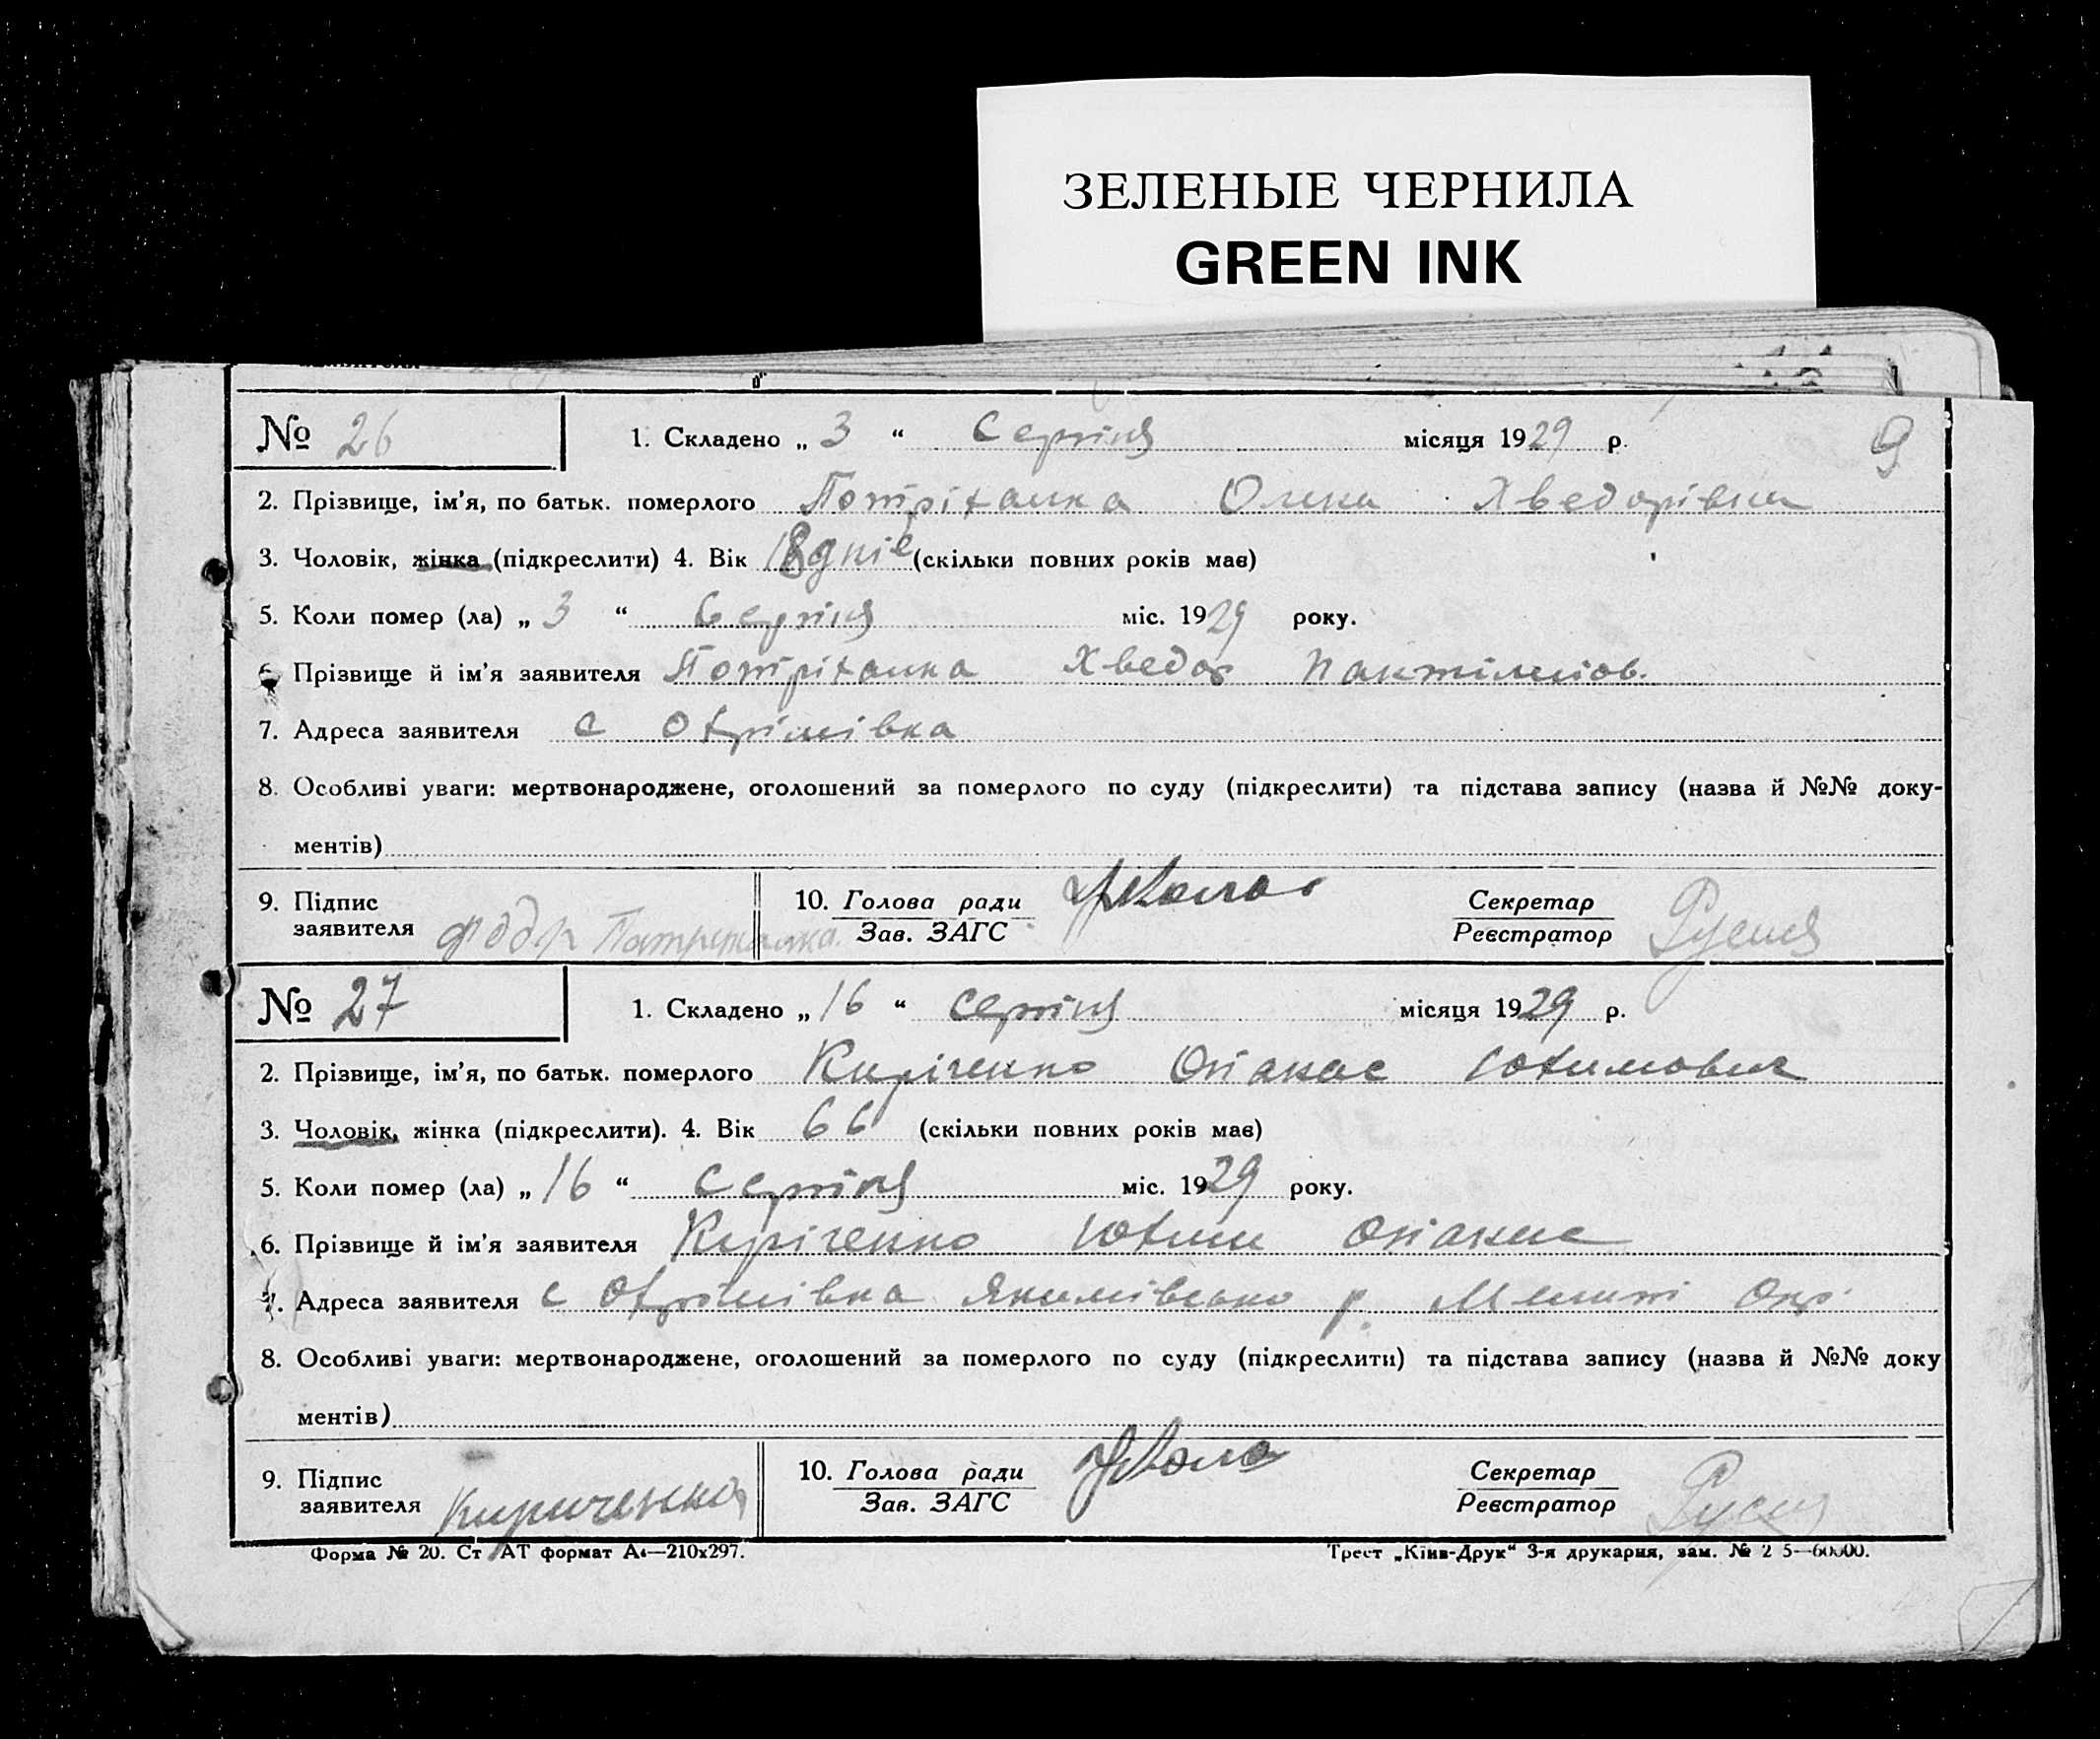 ЗЕЛЕНЫЕ ЧЕРНИЛА
GREEN INK
№ 26 1. Складено „ 3 “ Серпня місяця 1929 р. 9
2. Прізвище, ім'я, по батьк. померлого Потріхалка Олена Хведорівна
3. Чоловік, жінка (підкреслити) 4. Вік 18 днів (скільки повних років має)
5. Коли помер (ла) „ 3 “ Серпня міс. 1929 року.
6. Прізвище й ім'я заявителя Потріхалка Хведор
7. Адреса заявителя с Охрімівка
8. Особливі уваги: мертвонароджене, оголошений за померлого по суду (підкреслити) та підстава запису (назва й №№ доку-
ментів)
9. Підпис заявителя 10. Голова ради Секретар
Зав. ЗАГС Реєстратор
№ 27 1. Складено „ 16 “ серпня місяця 1929 р.
2. Прізвище, ім'я, по батьк. померлого Киріченко Опанас Юхимович
3. Чоловік, жінка (підкреслити). 4. Вік 66 (скільки повних років має)
5. Коли помер (ла) „ 16 “ Серпня міс. 1929 року.
6. Прізвище й ім'я заявителя Киріченко Юхим Опанас
7. Адреса заявителя с Охрімівка Якимівсько р. Меліт Окр.
8. Особливі уваги: мертвонароджене, оголошений за померлого по суду (підкреслити) та підстава запису (назва й №№ доку
ментів)
9. Підпис заявителя Кириченко 10. Голова ради Секретар
Зав. ЗАГС Реєстратор
Форма № 20. Ст АТ формат А4—210х297. Трест „Київ-Друк“ 3-я друкарня, зам. №